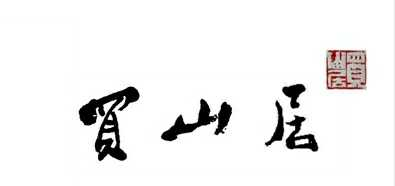 買山居
買山居